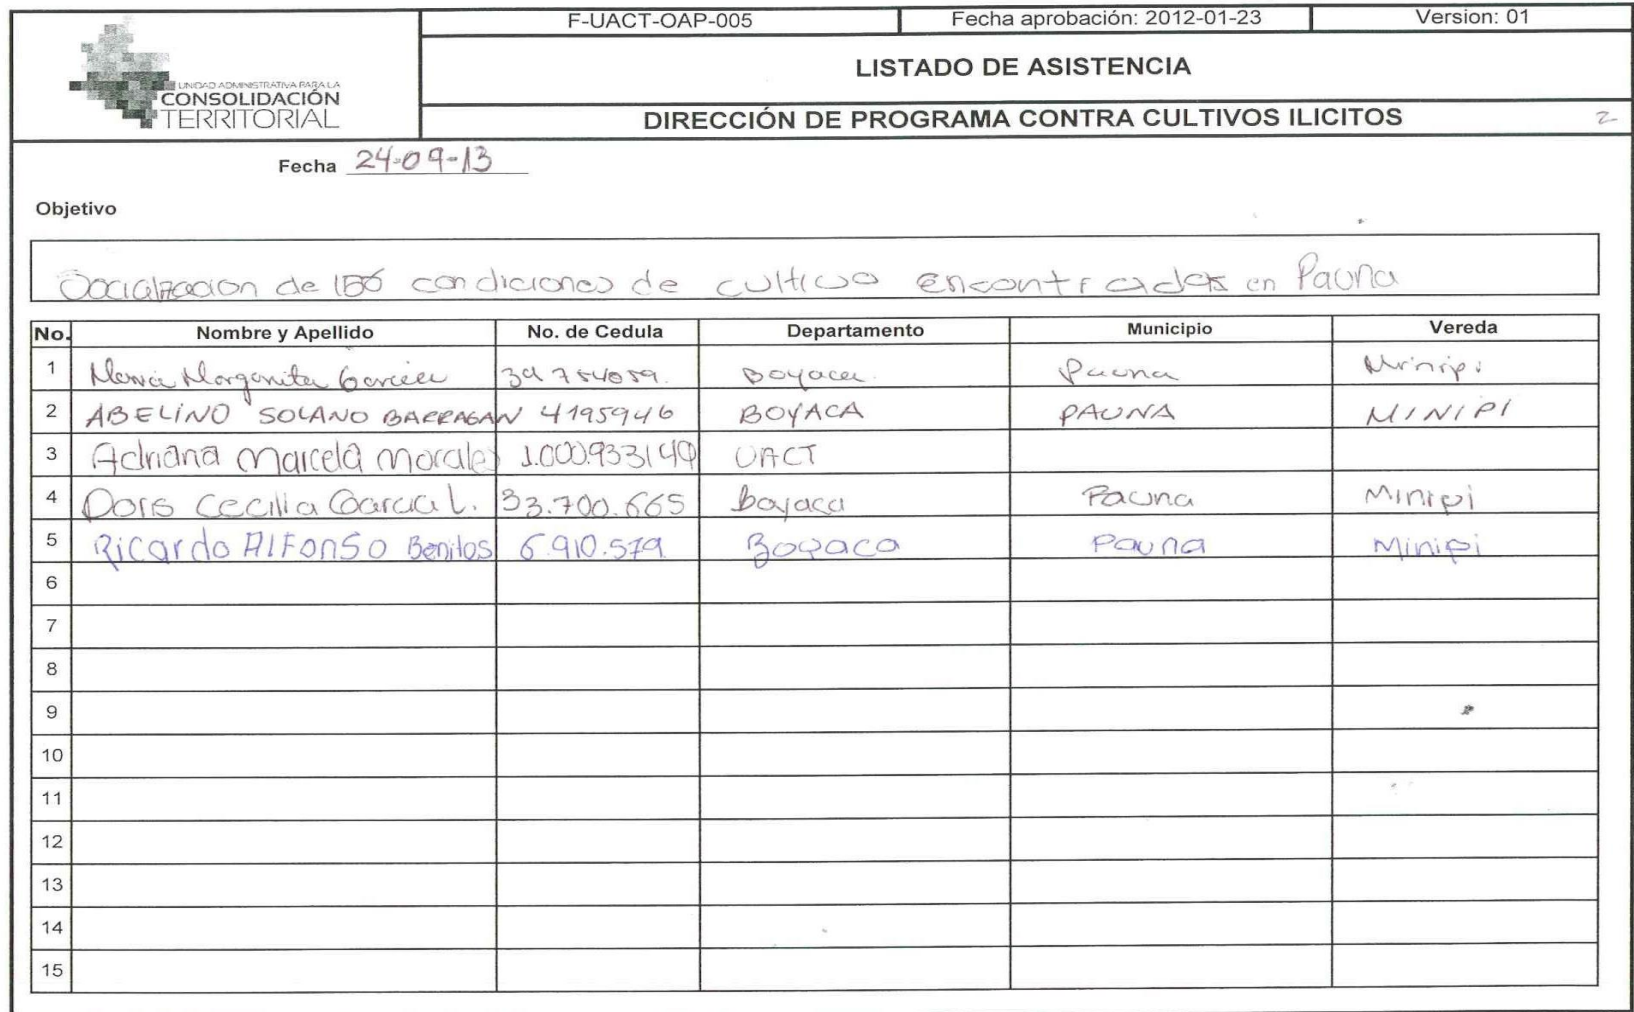 F-UACT-OAP-005 Fecha aprobación: 2012-01-23 Version: 01
UNIDAD ADMINISTRATIVA PARA LA
CONSOLIDACIÓN
TERRITORIAL
LISTADO DE ASISTENCIA
DIRECCIÓN DE PROGRAMA CONTRA CULTIVOS ILICITOS 2
Fecha 24-09-13
Objetivo
Socialización de las condiciones de cultivo encontradas en Pauna
No. Nombre y Apellido No. de Cedula Departamento Municipio Vereda
1 Maria Margarita Garcia 39754059. Boyaca. Pauna Minipi
2 ABELINO SOLANO BARRAGAN 4195946 BOYACA PAUNA MINIPI
3 Adriana Marcela Morales 1.000.933149 UACT
4 Doris Cecilia Garcia L. 33.700.665 boyaca Pauna Minipi
5 Ricardo Alfonso Benitos 6.910.579 Boyaca Pauna Minipi
6
7
8
9
10
11
12
13
14
15